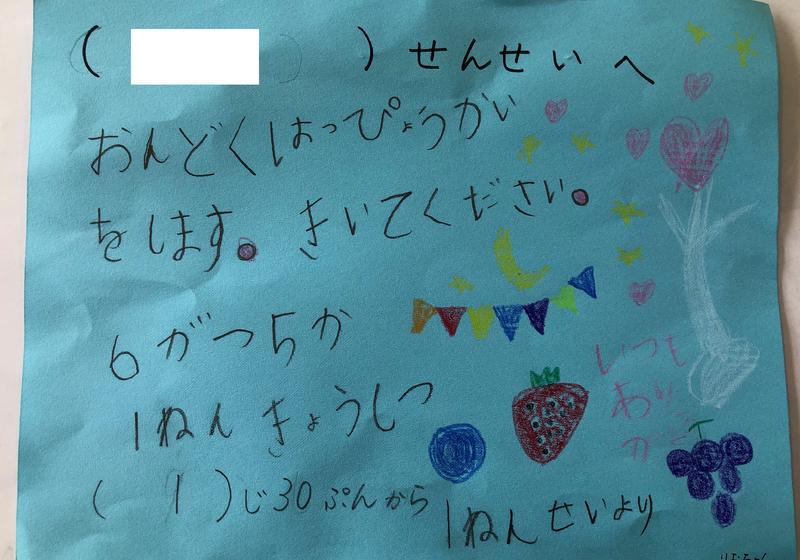 ( ) せんせい へ
おんどくはっぴょうかい
をします。きいてください。
6がつ5か
1ねん きょうしつ
( 1 )じ30ぷんから
いつも
あり
が
1ねんせいより